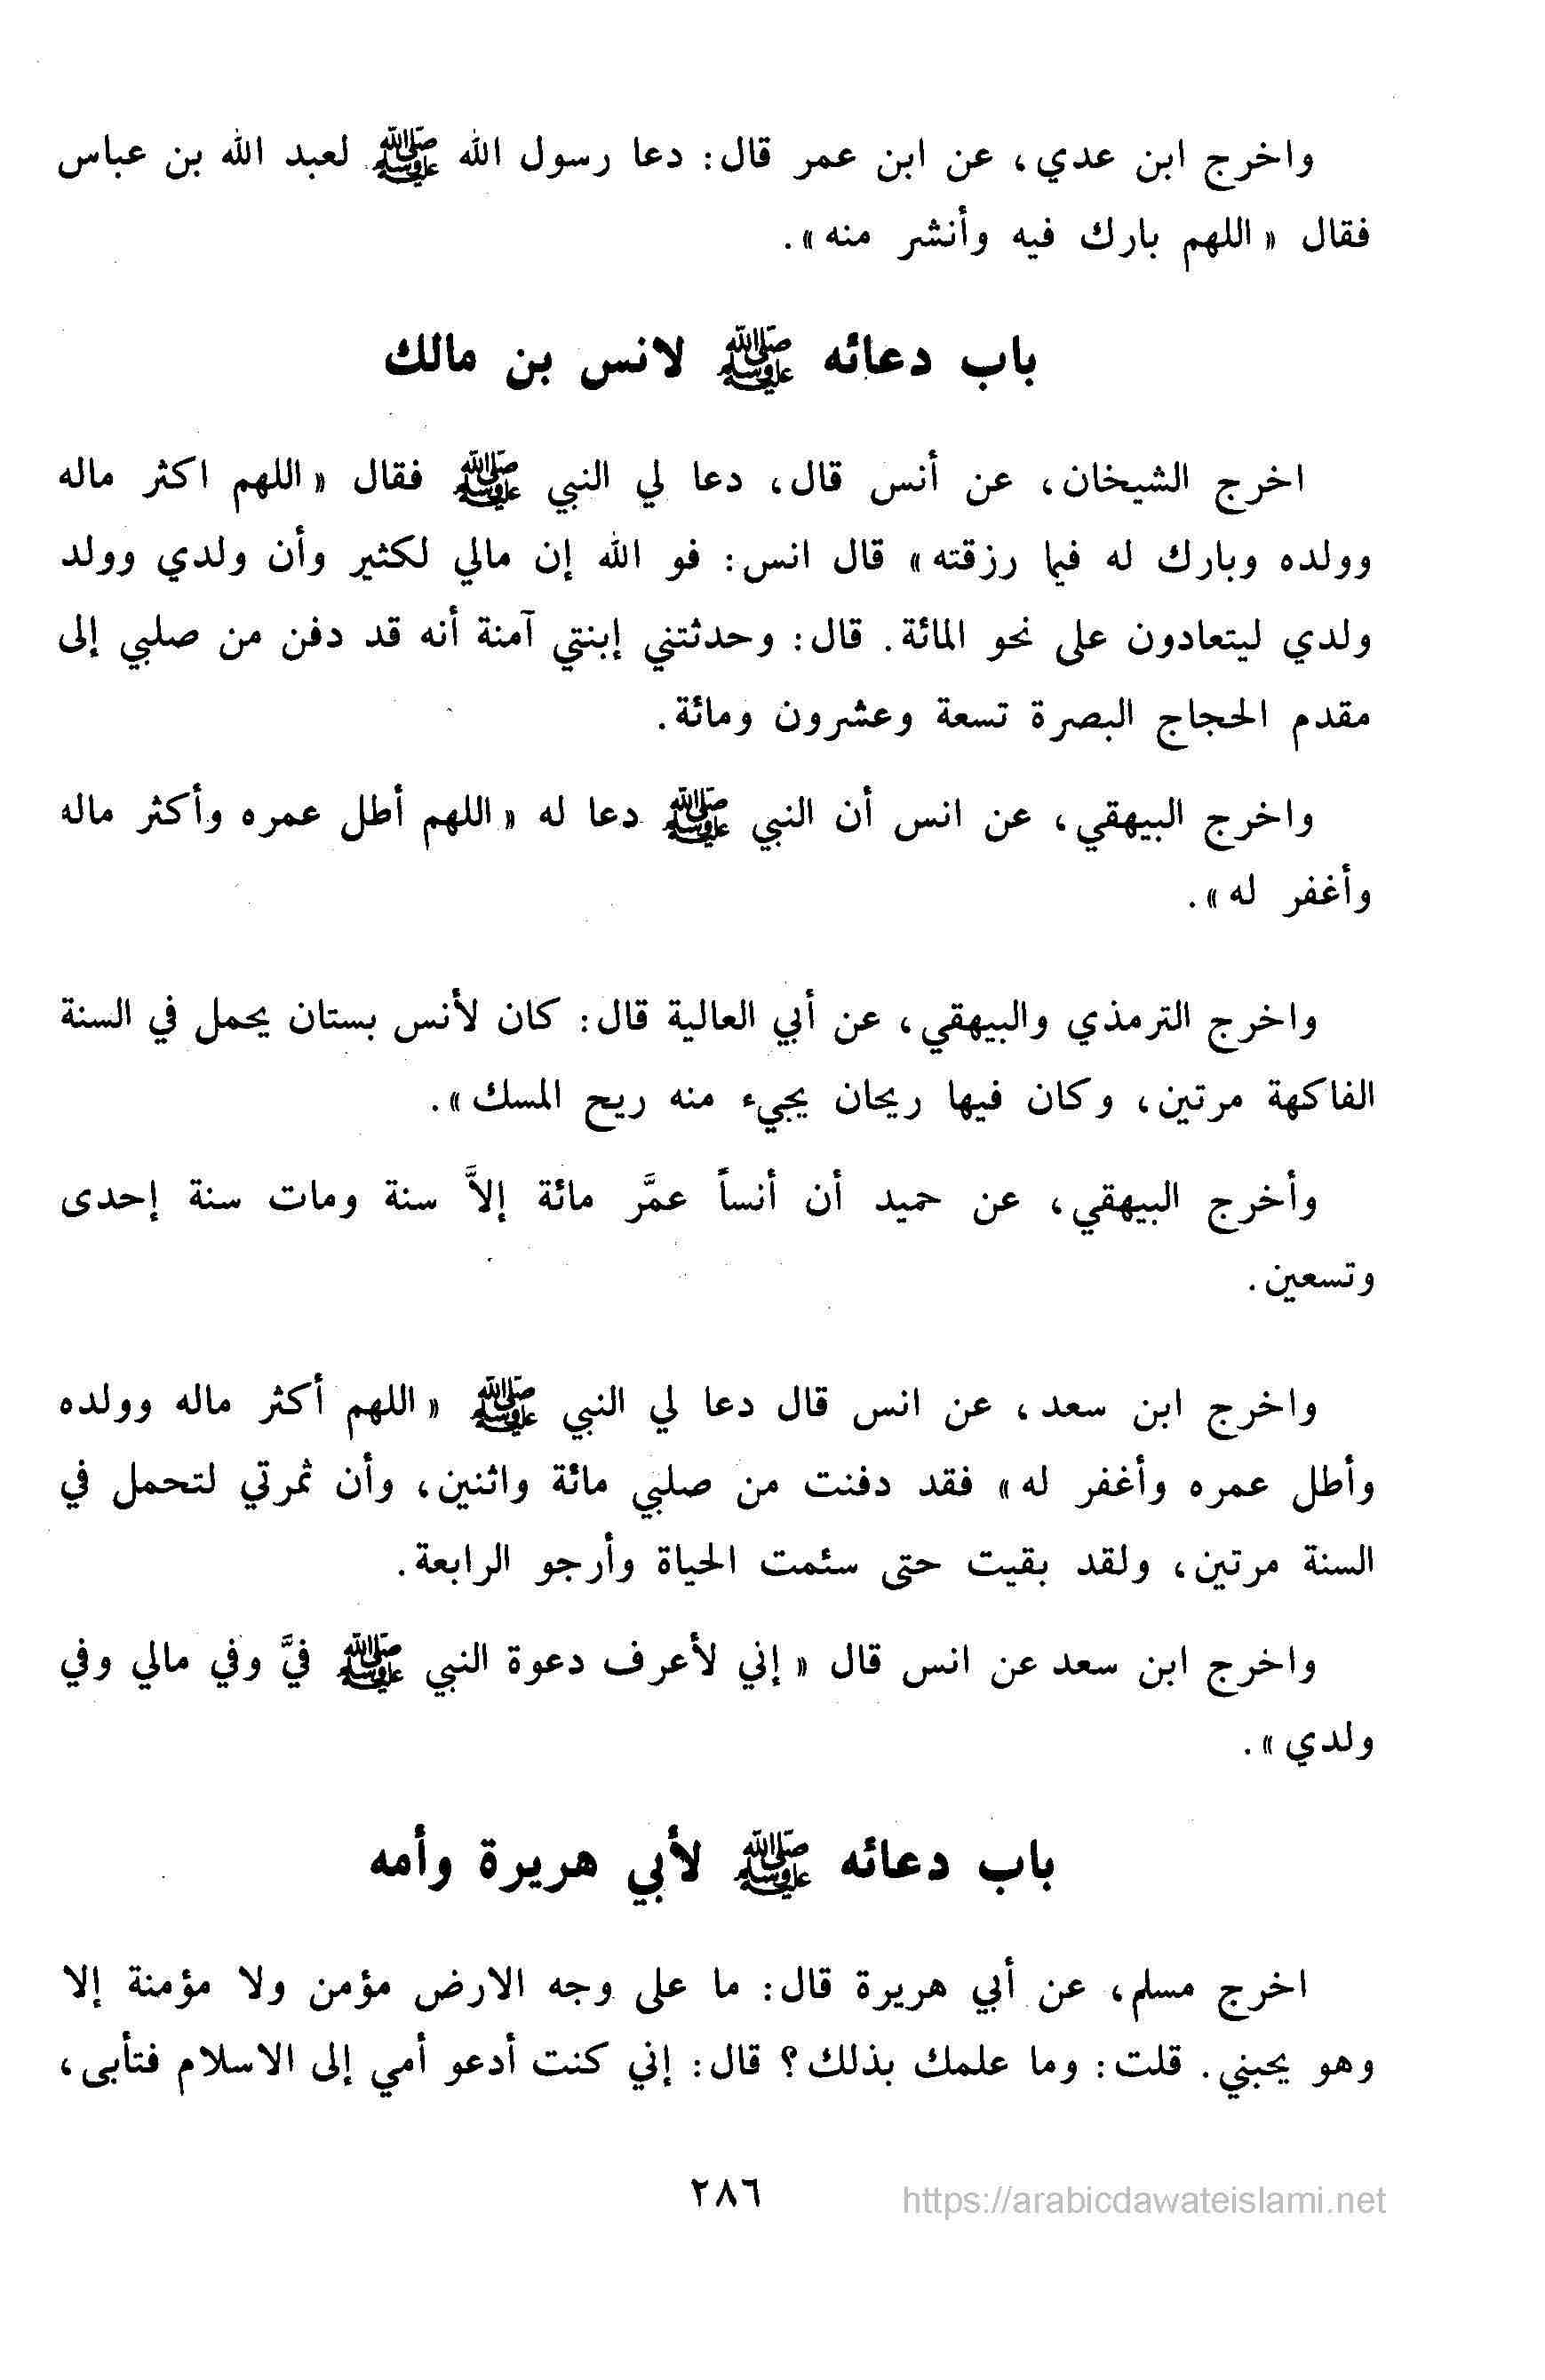 واخرج ابن عدي، عن ابن عمر قال: دعا رسول الله ﷺ لعبد الله بن عباس
فقال « اللهم بارك فيه وأنشر منه».
باب دعائه ﷺ لانس بن مالك
اخرج الشيخان، عن أنس قال، دعا لي النبي ﷺ فقال « اللهم اكثر ماله
وولده وبارك له فيما رزقته» قال انس: فو الله إن مالي لكثير وأن ولدي وولد
ولدي ليتعادون على نحو المائة. قال: وحدثتني إبنتي آمنة أنه قد دفن من صلبي إلى
مقدم الحجاج البصرة تسعة وعشرون ومائة.
واخرج البيهقي، عن انس أن النبي ﷺ دعا له « اللهم أطل عمره وأكثر ماله
وأغفر له».
واخرج الترمذي والبيهقي، عن أبي العالية قال: كان لأنس بستان يحمل في السنة
الفاكهة مرتين، وكان فيها ريحان يجيء منه ريح المسك».
وأخرج البيهقي، عن حميد أن أنساً عمَّر مائة إلاَّ سنة ومات سنة إحدى
وتسعين.
واخرج ابن سعد، عن انس قال دعا لي النبي ﷺ « اللهم أكثر ماله وولده
وأطل عمره وأغفر له» فقد دفنت من صلبي مائة واثنين، وأن ثمرتي لتحمل في
السنة مرتين، ولقد بقيت حتى سئمت الحياة وأرجو الرابعة.
واخرج ابن سعد عن انس قال « إني لأعرف دعوة النبي ﷺ فيَّ وفي مالي وفي
ولدي».
باب دعائه ﷺ لأبي هريرة وأمه
اخرج مسلم، عن أبي هريرة قال: ما على وجه الارض مؤمن ولا مؤمنة إلا
وهو يحبني. قلت: وما علمك بذلك؟ قال: إني كنت أدعو أمي إلى الاسلام فتأبى،
٢٨٦
https://arabicdawateislami.net